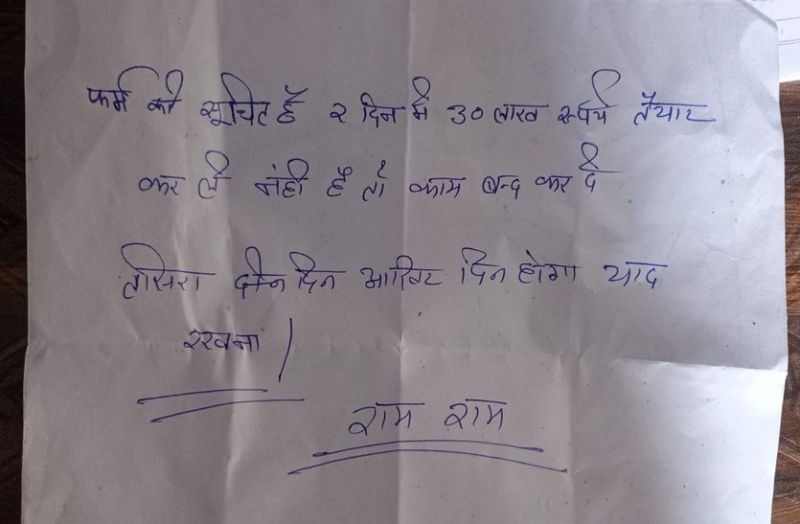 फर्म को सूचित है २ दिन मे 30 लाख रूपये तैयार
कर ले नंही है तो काम बन्द कर दे
तीसरा दिन आखिर दिन होगा याद
रखना ।
राम राम